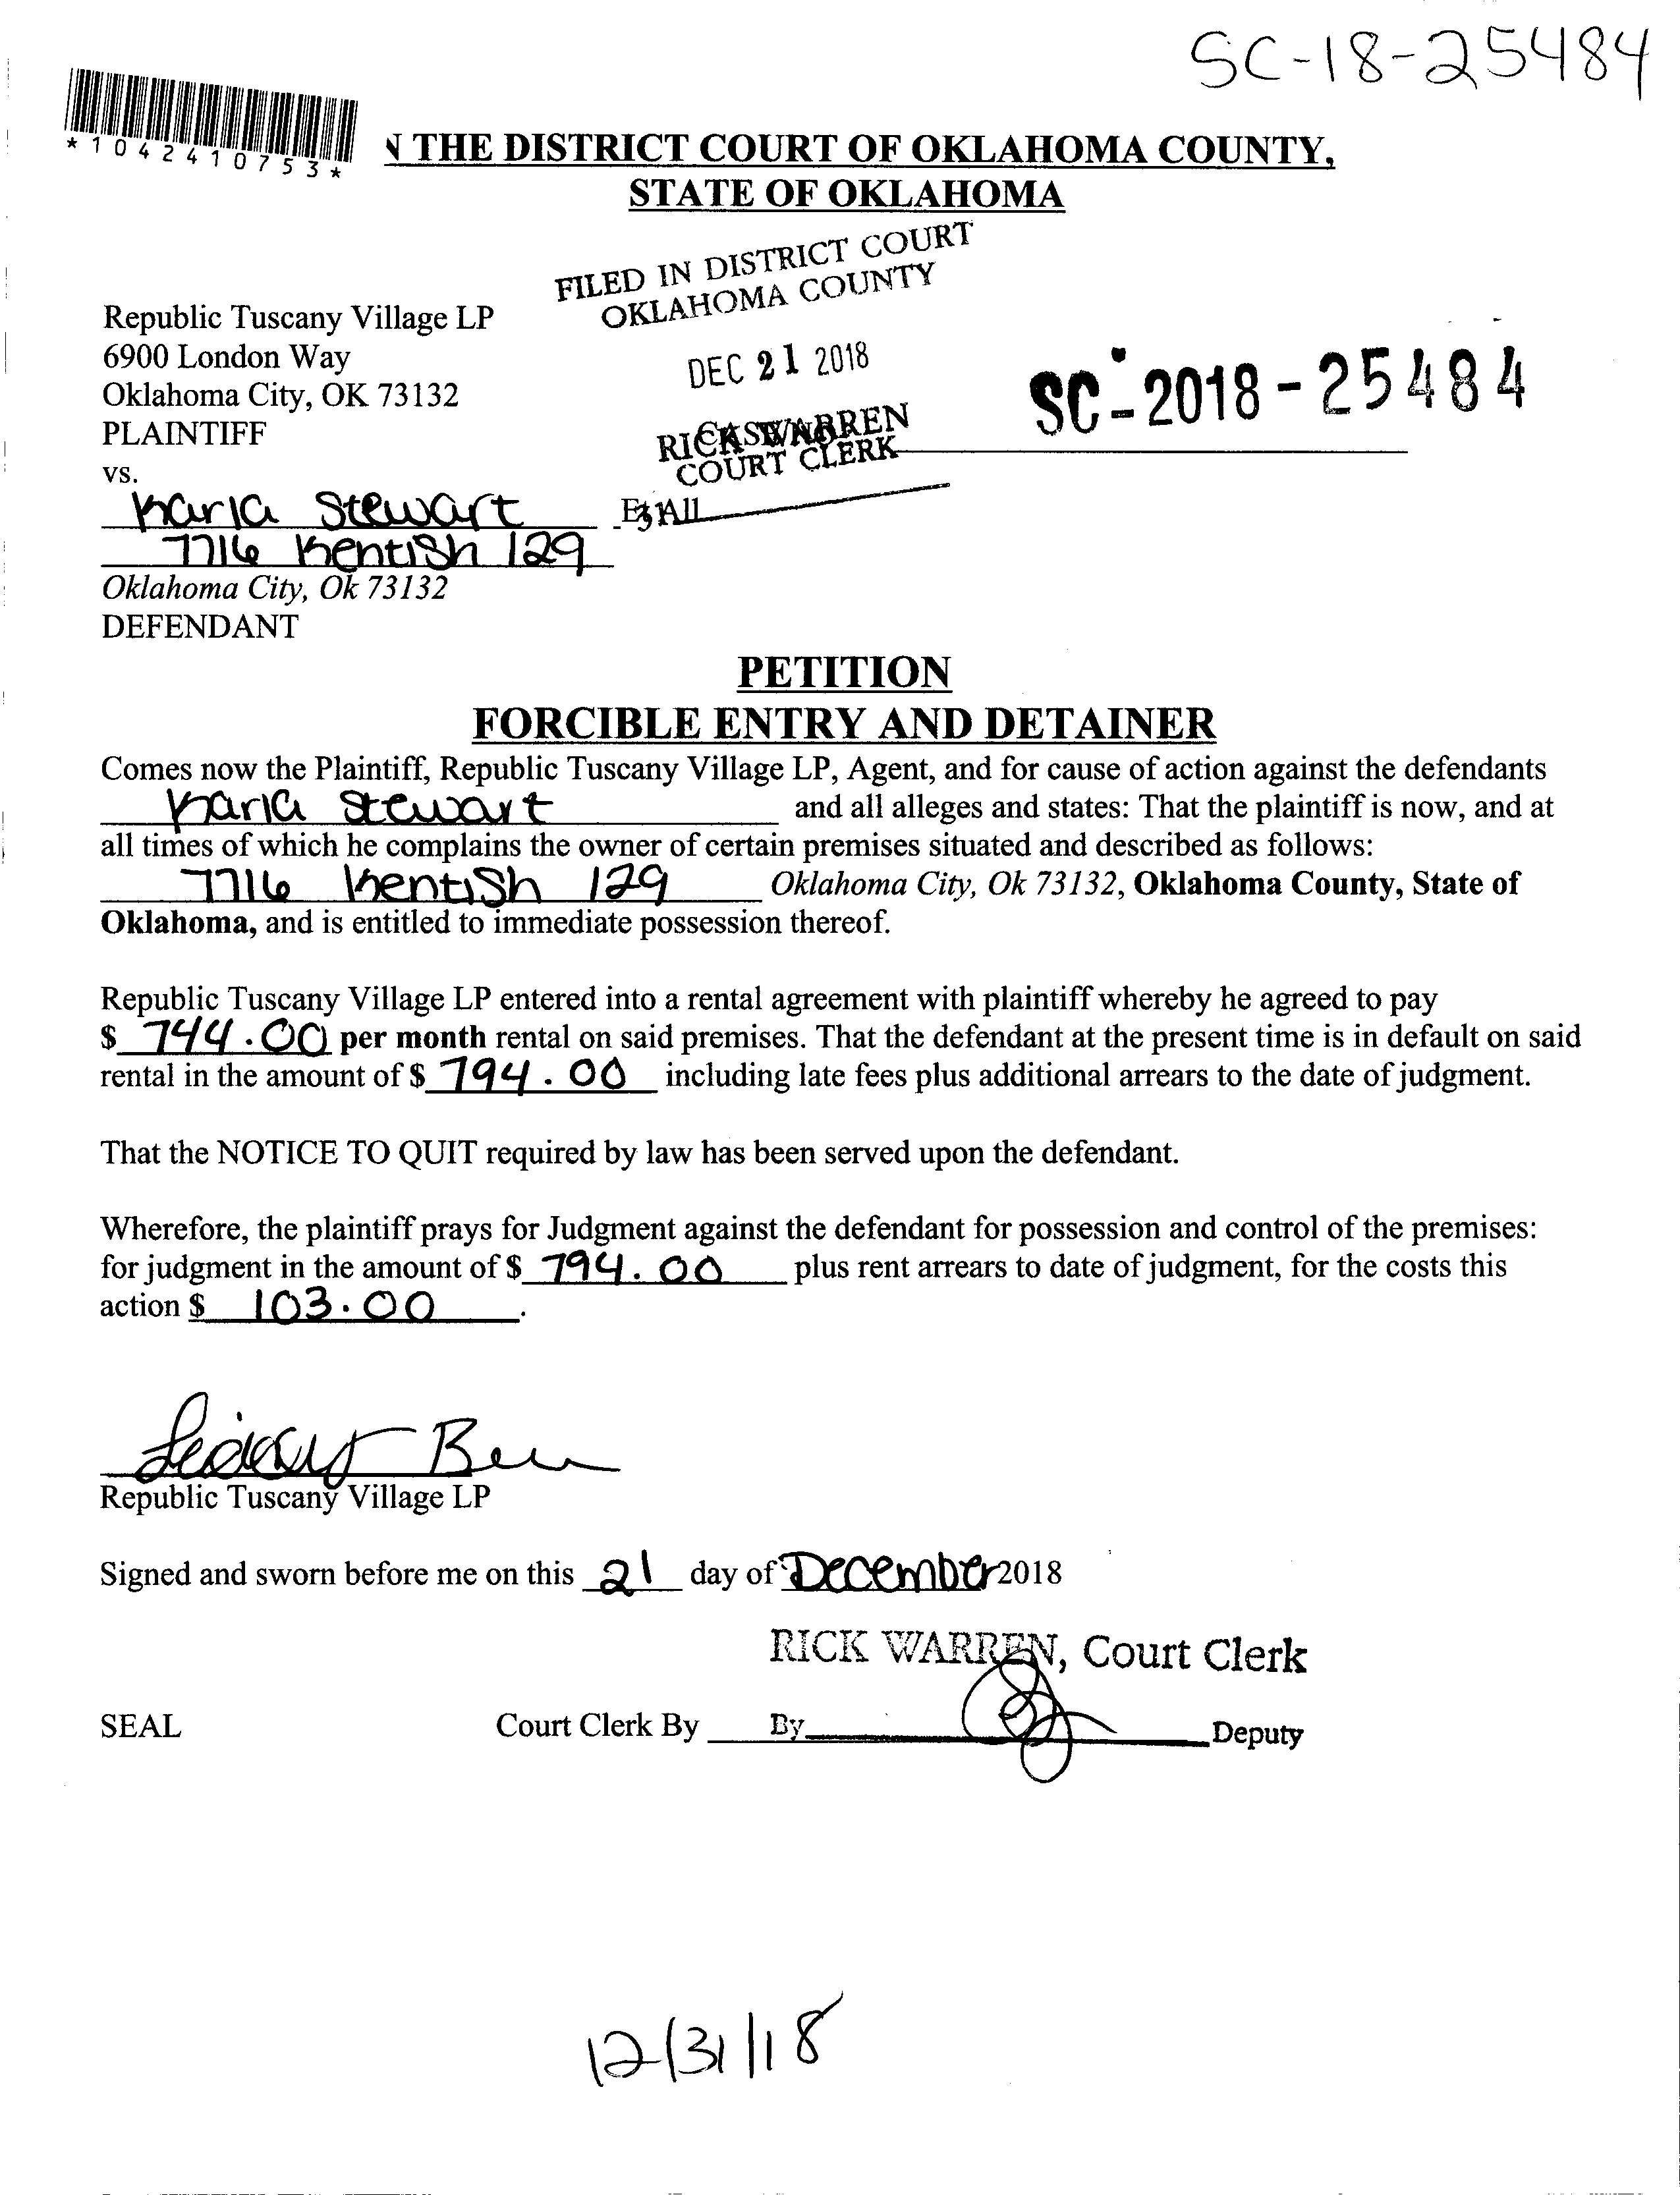 SC-18-25484
*1042410753*
N THE DISTRICT COURT OF OKLAHOMA COUNTY,
STATE OF OKLAHOMA
FILED IN DISTRICT COURT
OKLAHOMA COUNTY
Republic Tuscany Village LP
6900 London Way
Oklahoma City, OK 73132
DEC 21 2018
SC-2018-25484
PLAINTIFF
RICK WARREN
COURT CLERK
vs.
Karla Stewart Et All
7716 Kentish 129
Oklahoma City, Ok 73132
DEFENDANT
PETITION
FORCIBLE ENTRY AND DETAINER
Comes now the Plaintiff, Republic Tuscany Village LP, Agent, and for cause of action against the defendants
Karla Stewart and all alleges and states: That the plaintiff is now, and at
all times of which he complains the owner of certain premises situated and described as follows:
7716 Kentish 129 Oklahoma City, Ok 73132, Oklahoma County, State of
Oklahoma, and is entitled to immediate possession thereof.
Republic Tuscany Village LP entered into a rental agreement with plaintiff whereby he agreed to pay
$ 744.00 per month rental on said premises. That the defendant at the present time is in default on said
rental in the amount of $ 794.00 including late fees plus additional arrears to the date of judgment.
That the NOTICE TO QUIT required by law has been served upon the defendant.
Wherefore, the plaintiff prays for Judgment against the defendant for possession and control of the premises:
for judgment in the amount of $ 794.00 plus rent arrears to date of judgment, for the costs this
action $ 103.00.
Republic Tuscany Village LP
Signed and sworn before me on this 21 day of December 2018
RICK WARREN, Court Clerk
SEAL Court Clerk By By Deputy
12/31/18